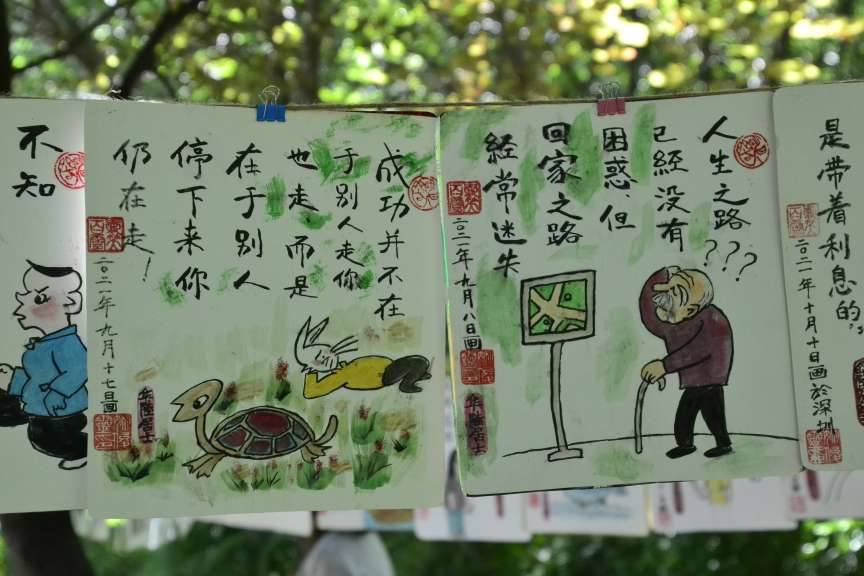 不知
成功并不在
于别人走你
也走而是
在于别人
停下来你
仍在走！
二〇二一年九月十七日画
人生之路
已經没有
困惑，但
回家之路
經常迷失
???
二〇二一年九月八日画
是带着利息的”
二〇二一年十月十日画於深圳